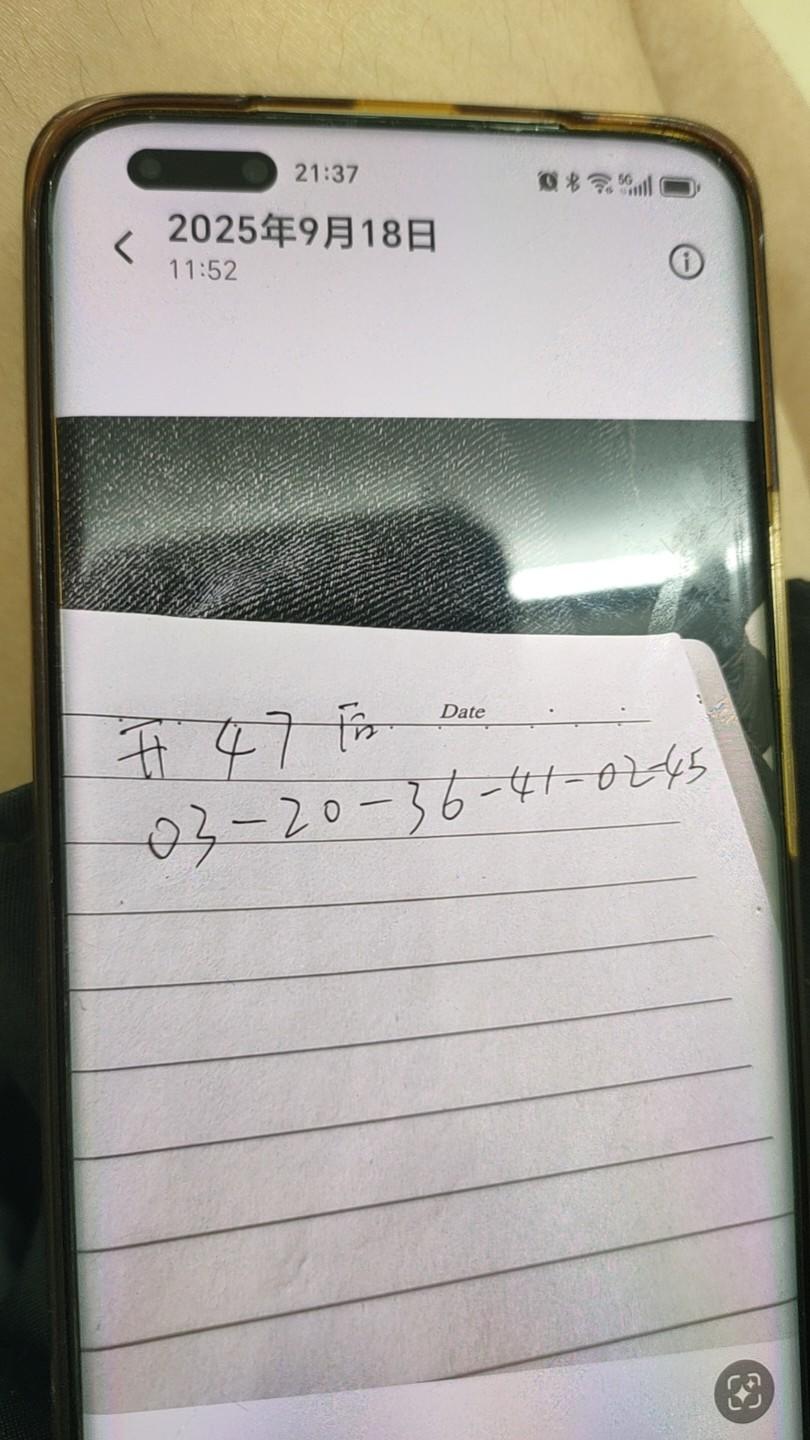 21:37
5G
2025年9月18日
11:52
Date
开 47 后
03-20-36-41-02-45